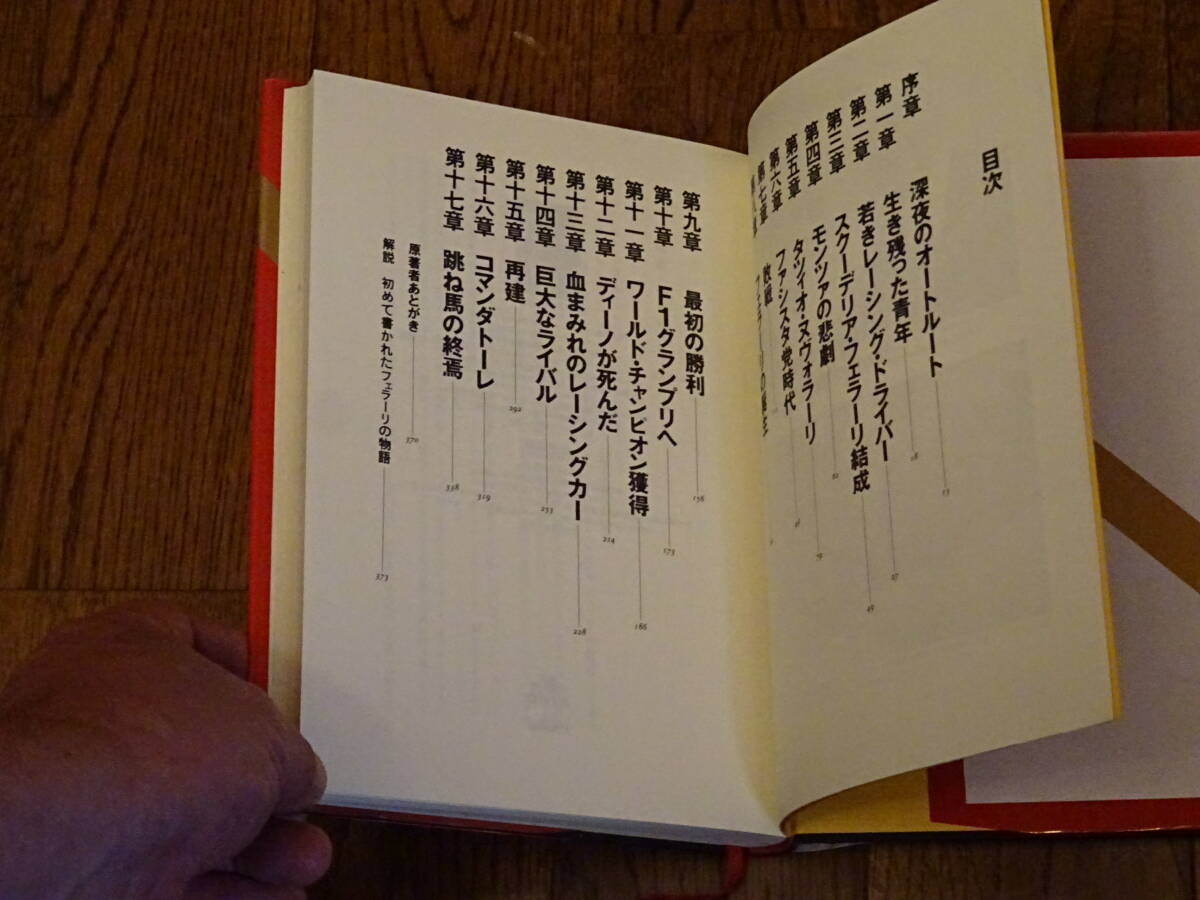 目次
序章 深夜のオートルート 13
第一章 生き残った青年 18
第二章 若きレーシング・ドライバー 27
第三章 スクーデリア・フェラーリ結成 49
第四章 モンツァの悲劇
第五章 タツィオ・ヌヴォラーリ
第六章 ファシスタ党時代
第七章 敗戦
第九章 最初の勝利 156
第十章 F1グランプリへ 173
第十一章 ワールド・チャンピオン獲得 186
第十二章 ディーノが死んだ 214
第十三章 血まみれのレーシングカー 228
第十四章 巨大なライバル 253
第十五章 再建 292
第十六章 コマンダトーレ 319
第十七章 跳ね馬の終焉 338
原著者あとがき 370
解説 初めて書かれたフェラーリの物語 373